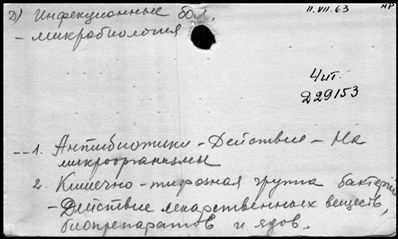 Д) Инфекционные бол.
11.VII.63
НР
- микробиология
Чит.
Д29153
1. Антибиотики - Действие - На
микроорганизмы
2. Кишечно-тифозная группа бактерий
- Действие лекарственных веществ,
биопрепаратов и ядов.